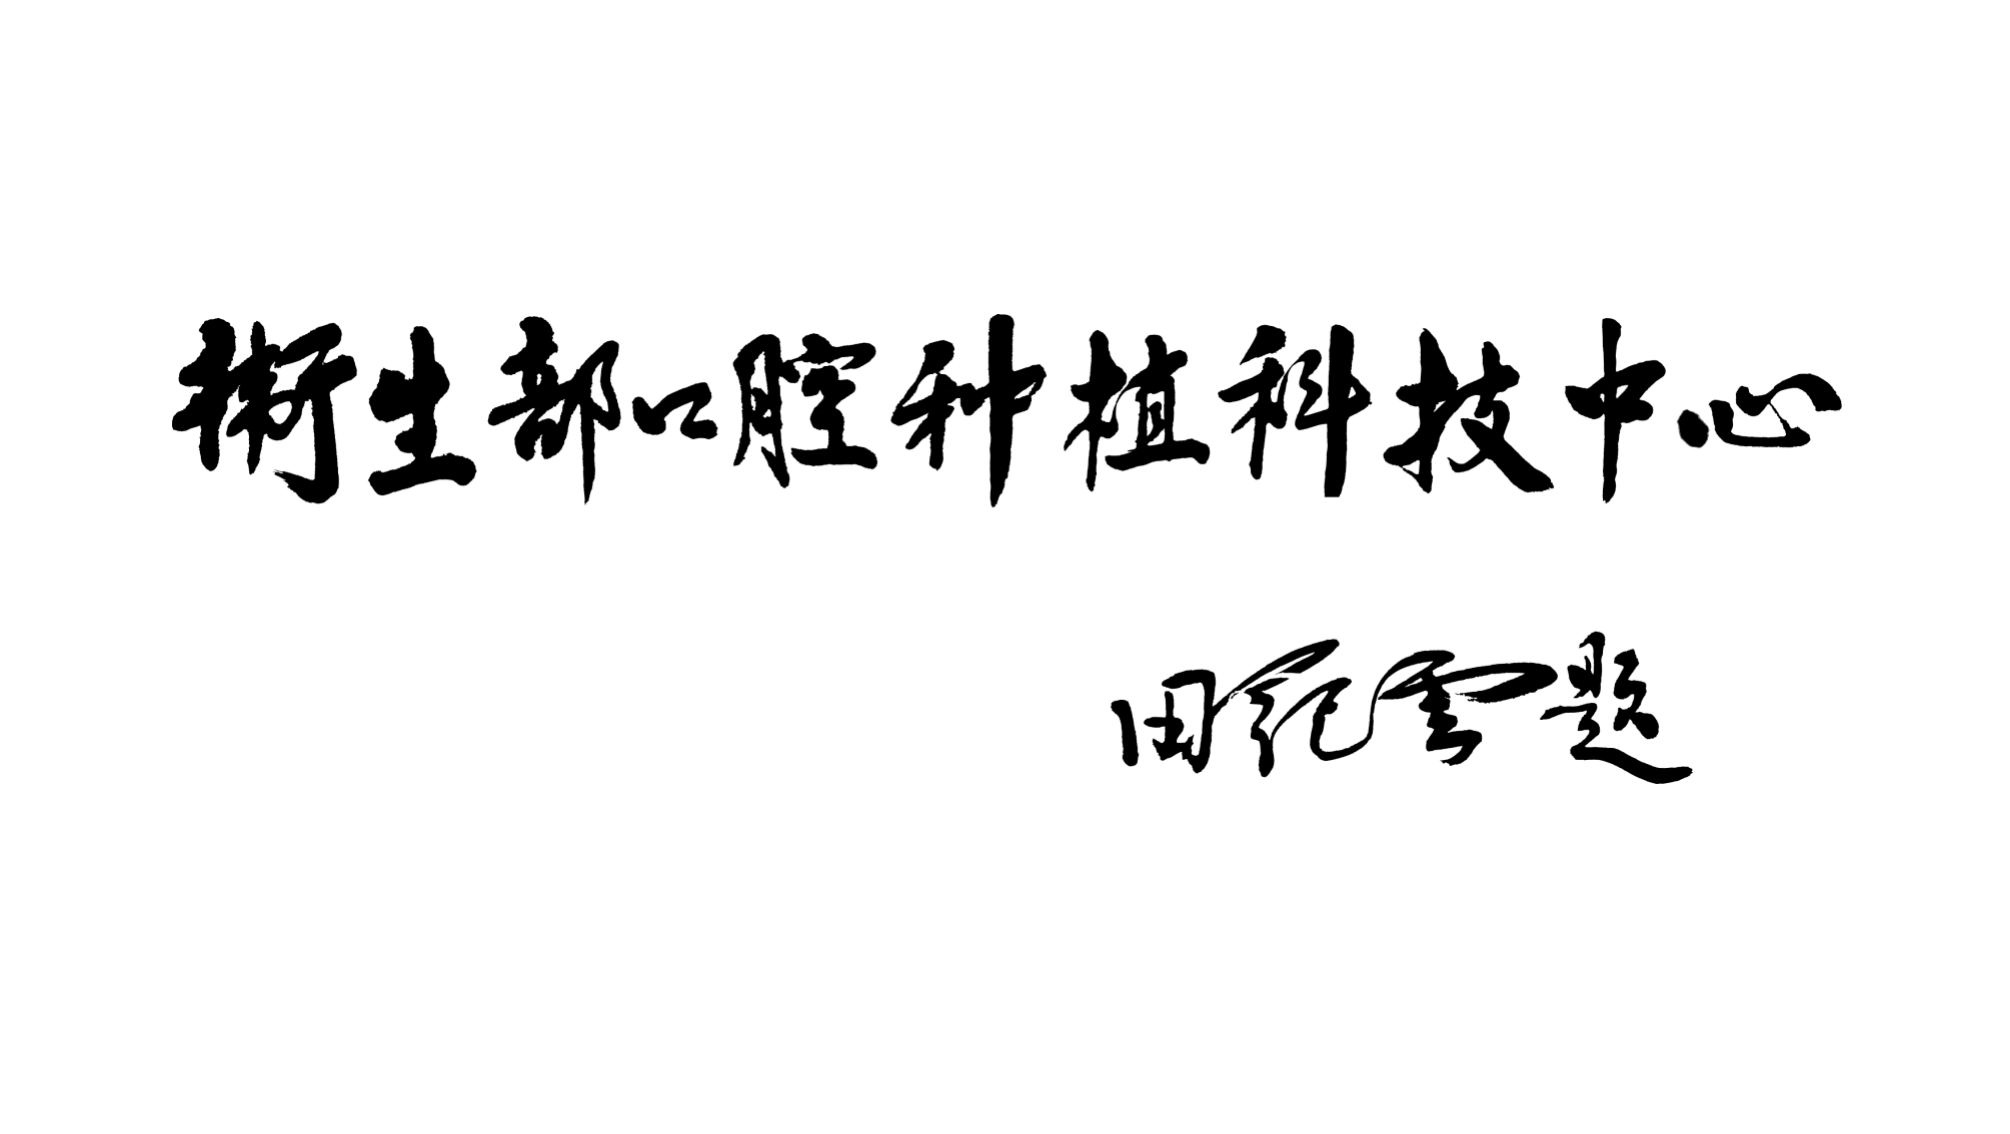 衛生部口腔种植科技中心
田纪雲题